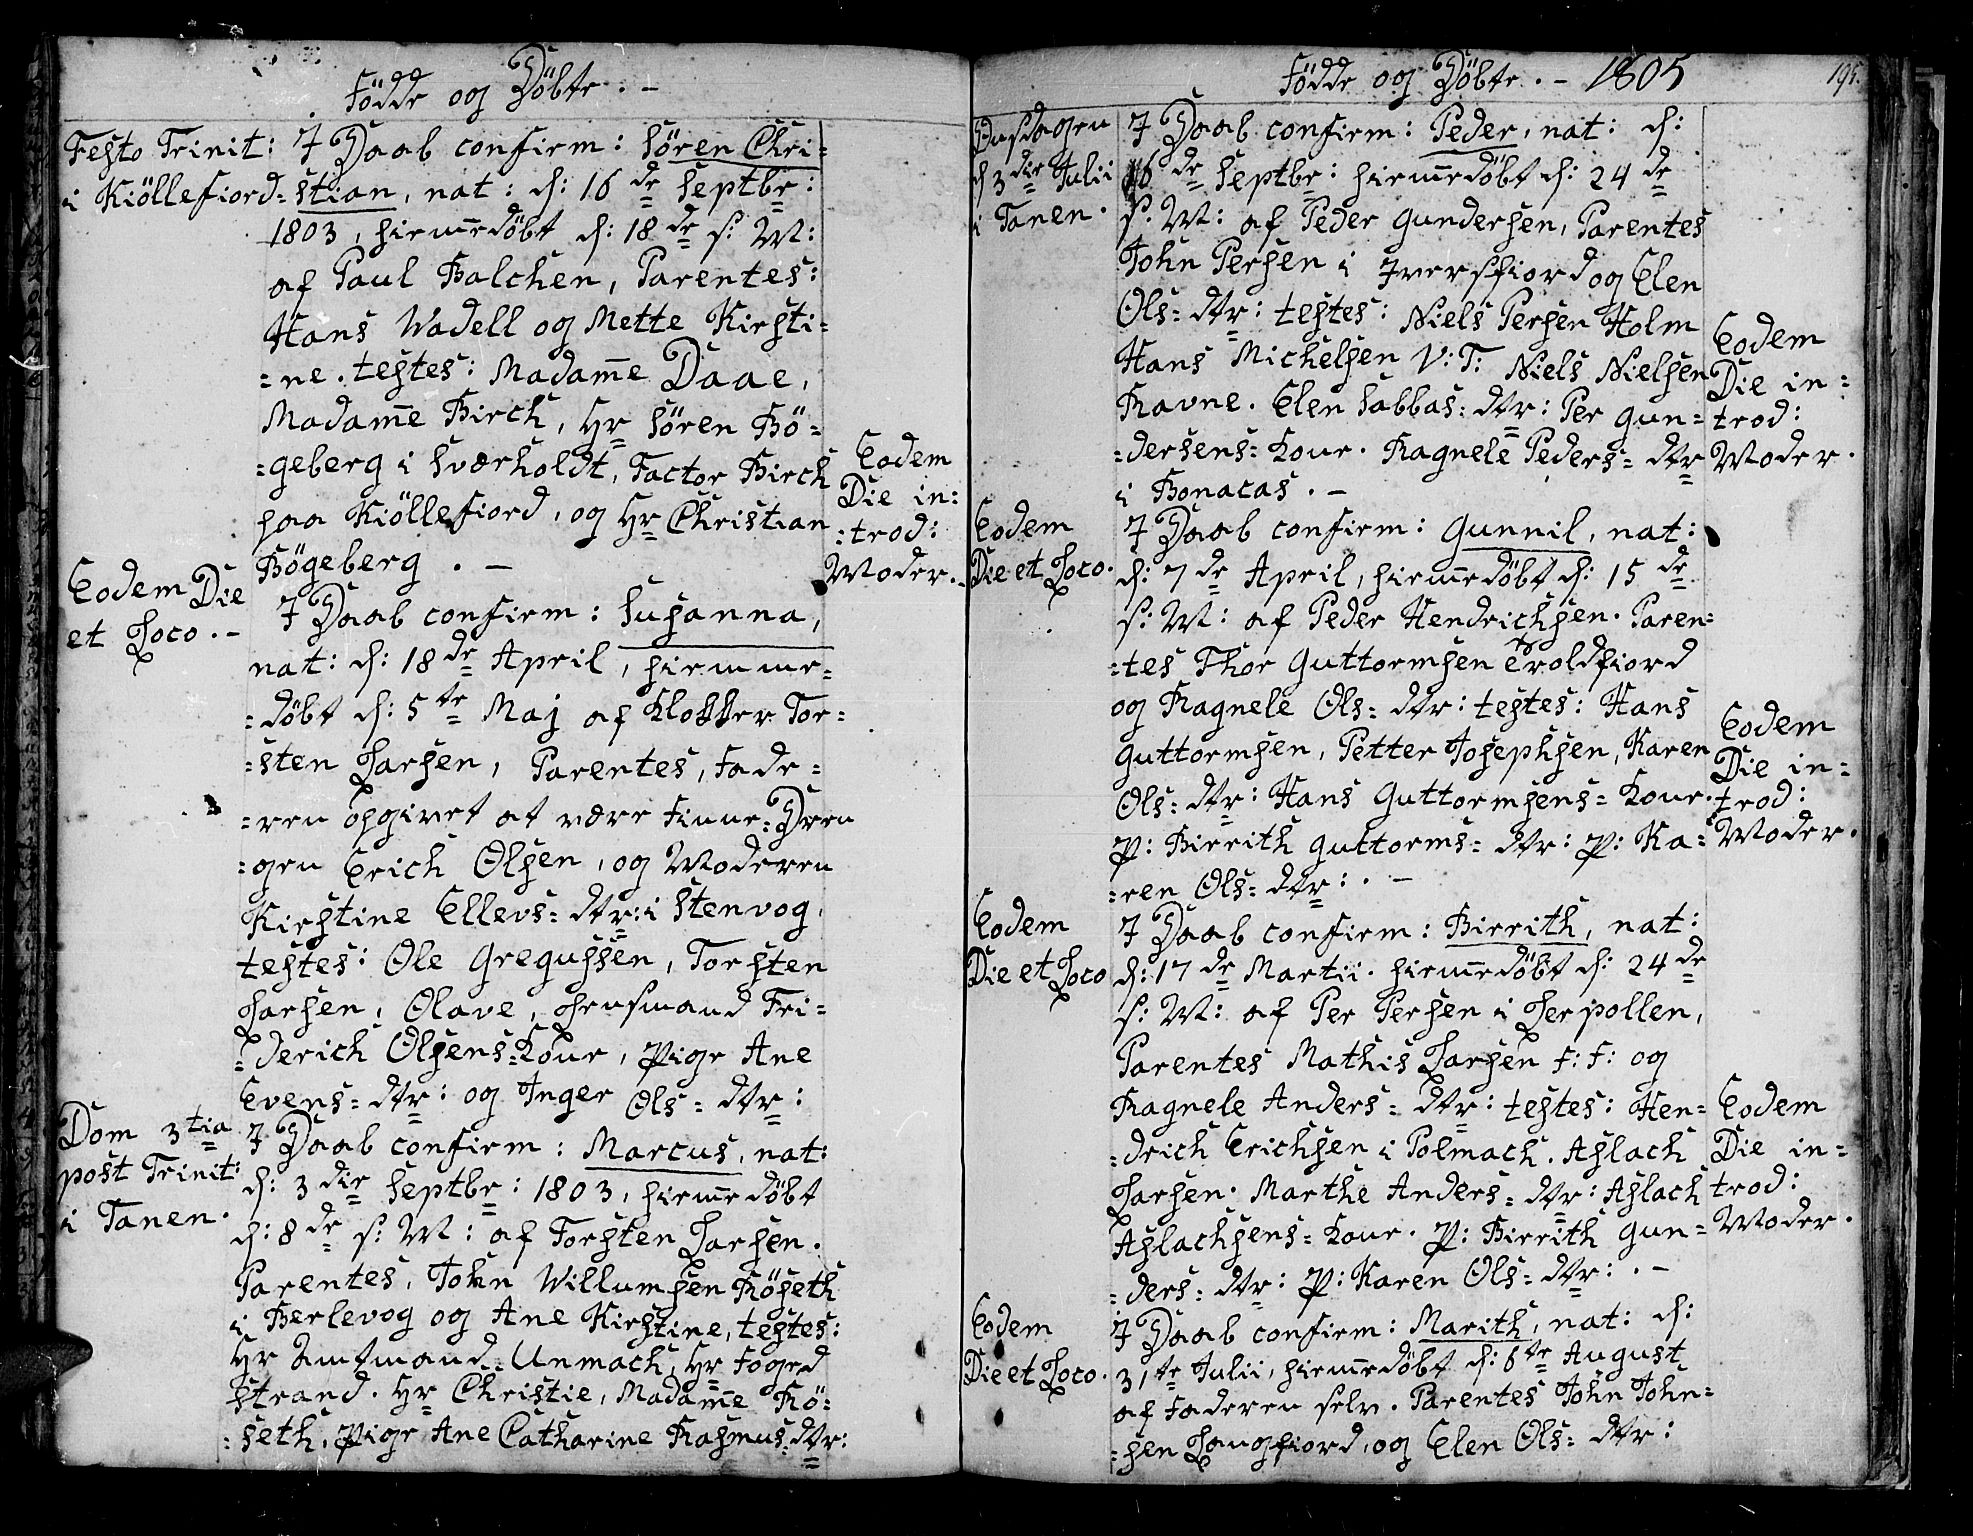 Födde og Döbte: –
Festo Trinit:
i Kiöllefiord
I Daab confirm: Sören Chri=
=stian, nat: d: 16 de Septbr:
1803, hiemmedöbt d: 18 de s: M:
af Paul Balchen, Parentes:
Hans Wadell og Mette Kirsti=
=ne. testes: Madame Daae,
Madame Birch, Hr Sören Bö=
=geberg i Sværholdt, Factor Birch
paa Kiöllefiord, og Hr Christian
Bögeberg. –
Eodem
Die in=
=trod:
Moder. –
Eodem Die
et Loco. –
I Daab confirm: Susanna,
nat: d: 18 de April, hiemme=
=döbt d: 5 te Maj af Klokker Tor=
=sten Larsen, Parentes, Fade=
=ren opgivet at være Finne=Dren
=gen Erich Olsen, og Moderen
Kirstine Ellevs= dtr: i Stenvog.
testes: Ole Gregussen, Torsten
Larsen, Olave, Lensmand Fri=
=derich Olsens=Kone, Pige Ane
Evens= dtr: og Inger Ols= dtr:
Dom 3 tia
post Trinit:
i Tanen.
I Daab confirm: Marcus, nat:
d: 3 die Septbr: 1803, hiemmedöbt
d: 8 de s: M: af Torsten Larsen.
Parentes, John Willumsen Röseth
i Berlevog og Ane Kirstine, testes:
Hr Amtmand=Unmach, Hr Foged
Strand. Hr Christie, Madame Rö=
=seth, Pige Ane Catharine Rasmus=dtr:
Födde og Döbte. – 1805
195.
d 3 die Julii
i Tanen.
I Daab confirm: Peder, nat: d:
16 de Septbr: hiemmedöbt d: 24 de
s: M: af Peder Gundersen, Parentes
John Persen i Iversfiord og Elen
Ols= dtr: testes: Niels Persen Holm
Hans Michelsen V: T: Niels Nielsen
Ravne. Elen Sabbas= dtr: Per Gun=
=dersens= Kone. Ragnele Peders= dtr
i Bonacas. –
Eodem
Die in=
trod:
Moder.
Eodem
Die et Loco.
I Daab confirm: Gunnil, nat:
d: 7 de April, hiemmedöbt d: 15 de
s: M: af Peder Hendrichsen. Paren=
=tes Thor Guttormsen Troldfiord
og Ragnele Ols= dtr: testes: Hans
Guttormsen, Petter Josephsen, Karen
Ols= dtr: Hans Guttormsens= Kone.
P: Birrith Guttorms= dtr: P: Ka=
=ren Ols= dtr: . –
Eodem
Die in=
trod:
Moder.
Eodem
Die et Loco
I Daab confirm: Birrith, nat:
d: 17 de Martii. hiemmedöbt d: 24 de
s: M: af Per Persen i Lerpollen,
Parentes Mathis Larsen F: F: og
Ragnele Anders= dtr: testes: Hen=
=drich Erichsen i Polmach. Aslach
Larsen. Marthe Anders= dtr: Aslach
Aslachsens= Kone. P: Birrith Gun=
=ders= dtr: P: Karen Ols= dtr: . –
Eodem
Die in=
trod:
Moder.
Eodem
Die et Loco.
I Daab confirm: Marith, nat: d:
31 te Julii, hiemmedöbt d: 6 te August
af Faderen selv. Parentes John John=
=sen Langfiord, og Elen Ols= dtr: